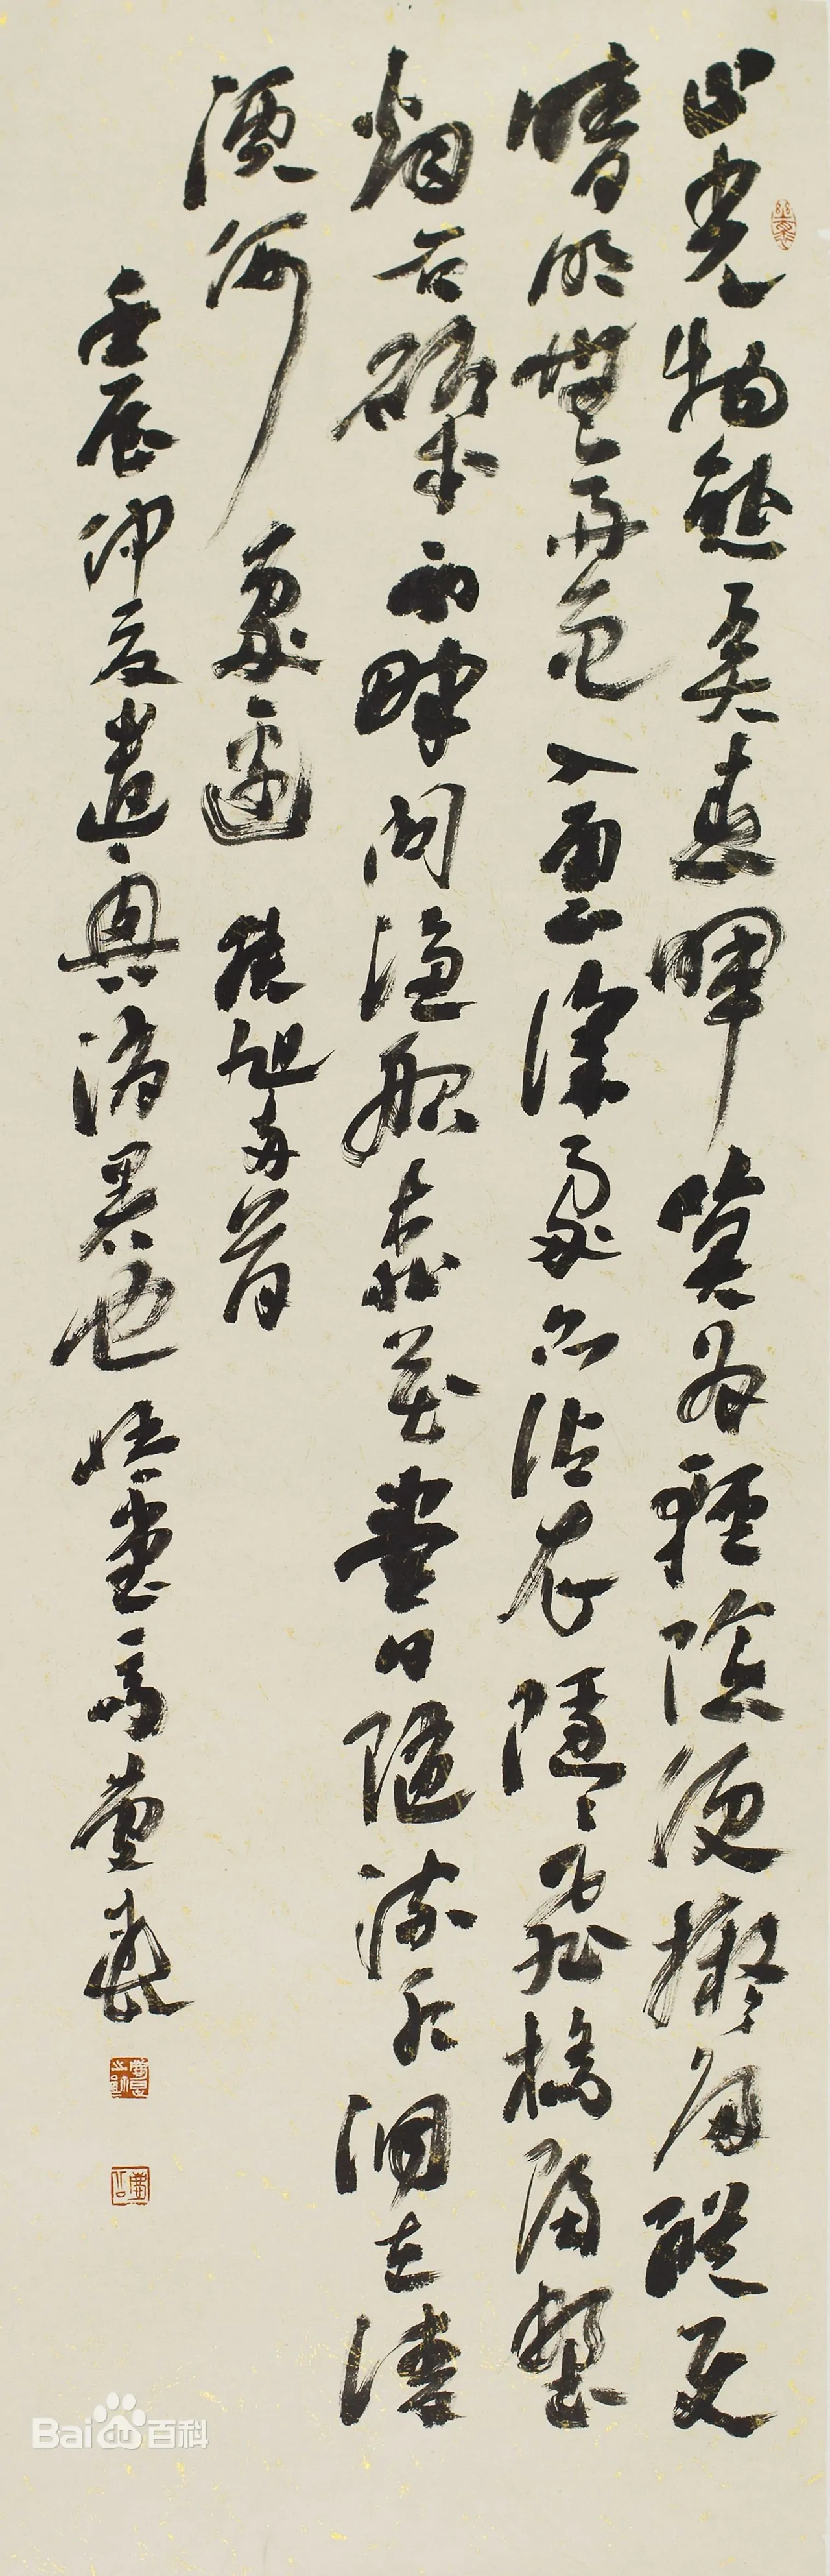 山光物態弄春暉莫為輕陰便擬歸縱使
晴明無雨色入雲深處亦沾衣隱々飛橋隔野
煙石磯西畔問漁船桃花盡日隨流水洞在清
溪何處邊 張旭兩首
壬辰仲夏遣興 墨也 堂高慶春
Bai百科